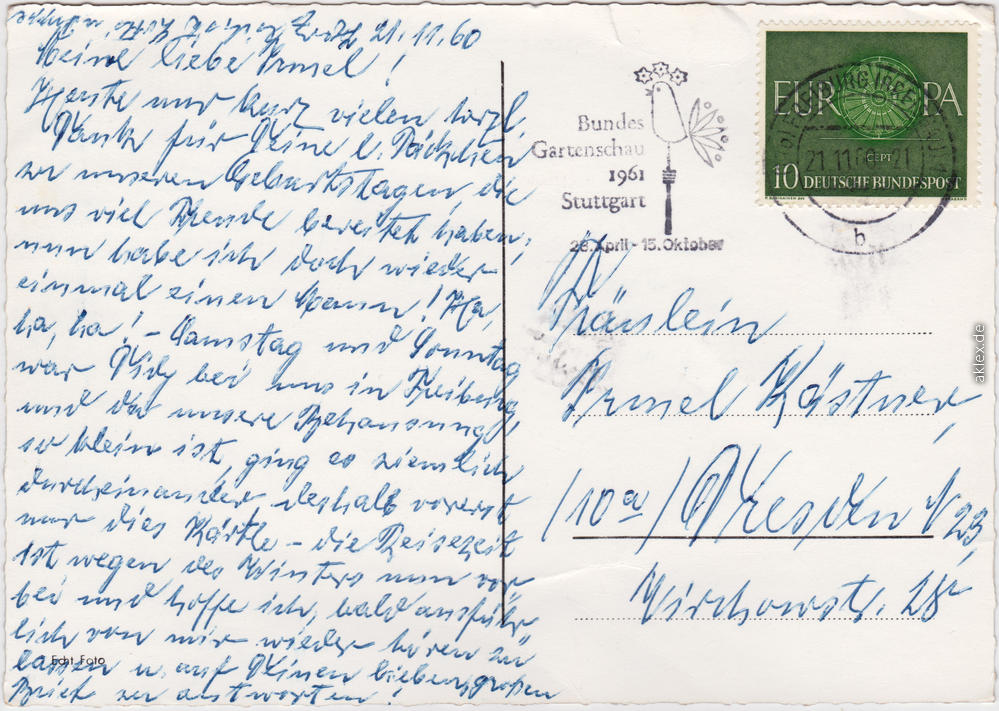 21.11.60
Meine liebe Irmel!
Heute nur kurz vielen herzl.
Dank für Deine l. Päckchen
zu unseren Geburtstagen, die
uns viel Freude bereitet haben;
nun habe ich doch wieder
einmal einen Mann! Ha,
ha, ha! – Samstag und Sonntag
war bei uns in Freiburg
und da unsere Behausung
so klein ist, ging es ziemlich
durcheinander, deshalb vorerst
nur dies Kärtle – die Reisezeit
ist wegen des Winters nun vor-
bei und hoffe ich, bald ausführ-
lich von mir wieder hören zu
lassen u. auf Deinen lieben, großen
Brief zu antworten!
Echt Foto
Bundes
Gartenschau
1961
Stuttgart
28. April - 15. Oktober
EUROPA
CEPT
10 DEUTSCHE BUNDESPOST
21.11.60-21
b
Fräulein
Irmel Kästner,
(10a) Dresden N 23,
Virchowstr. 28
aklex.de